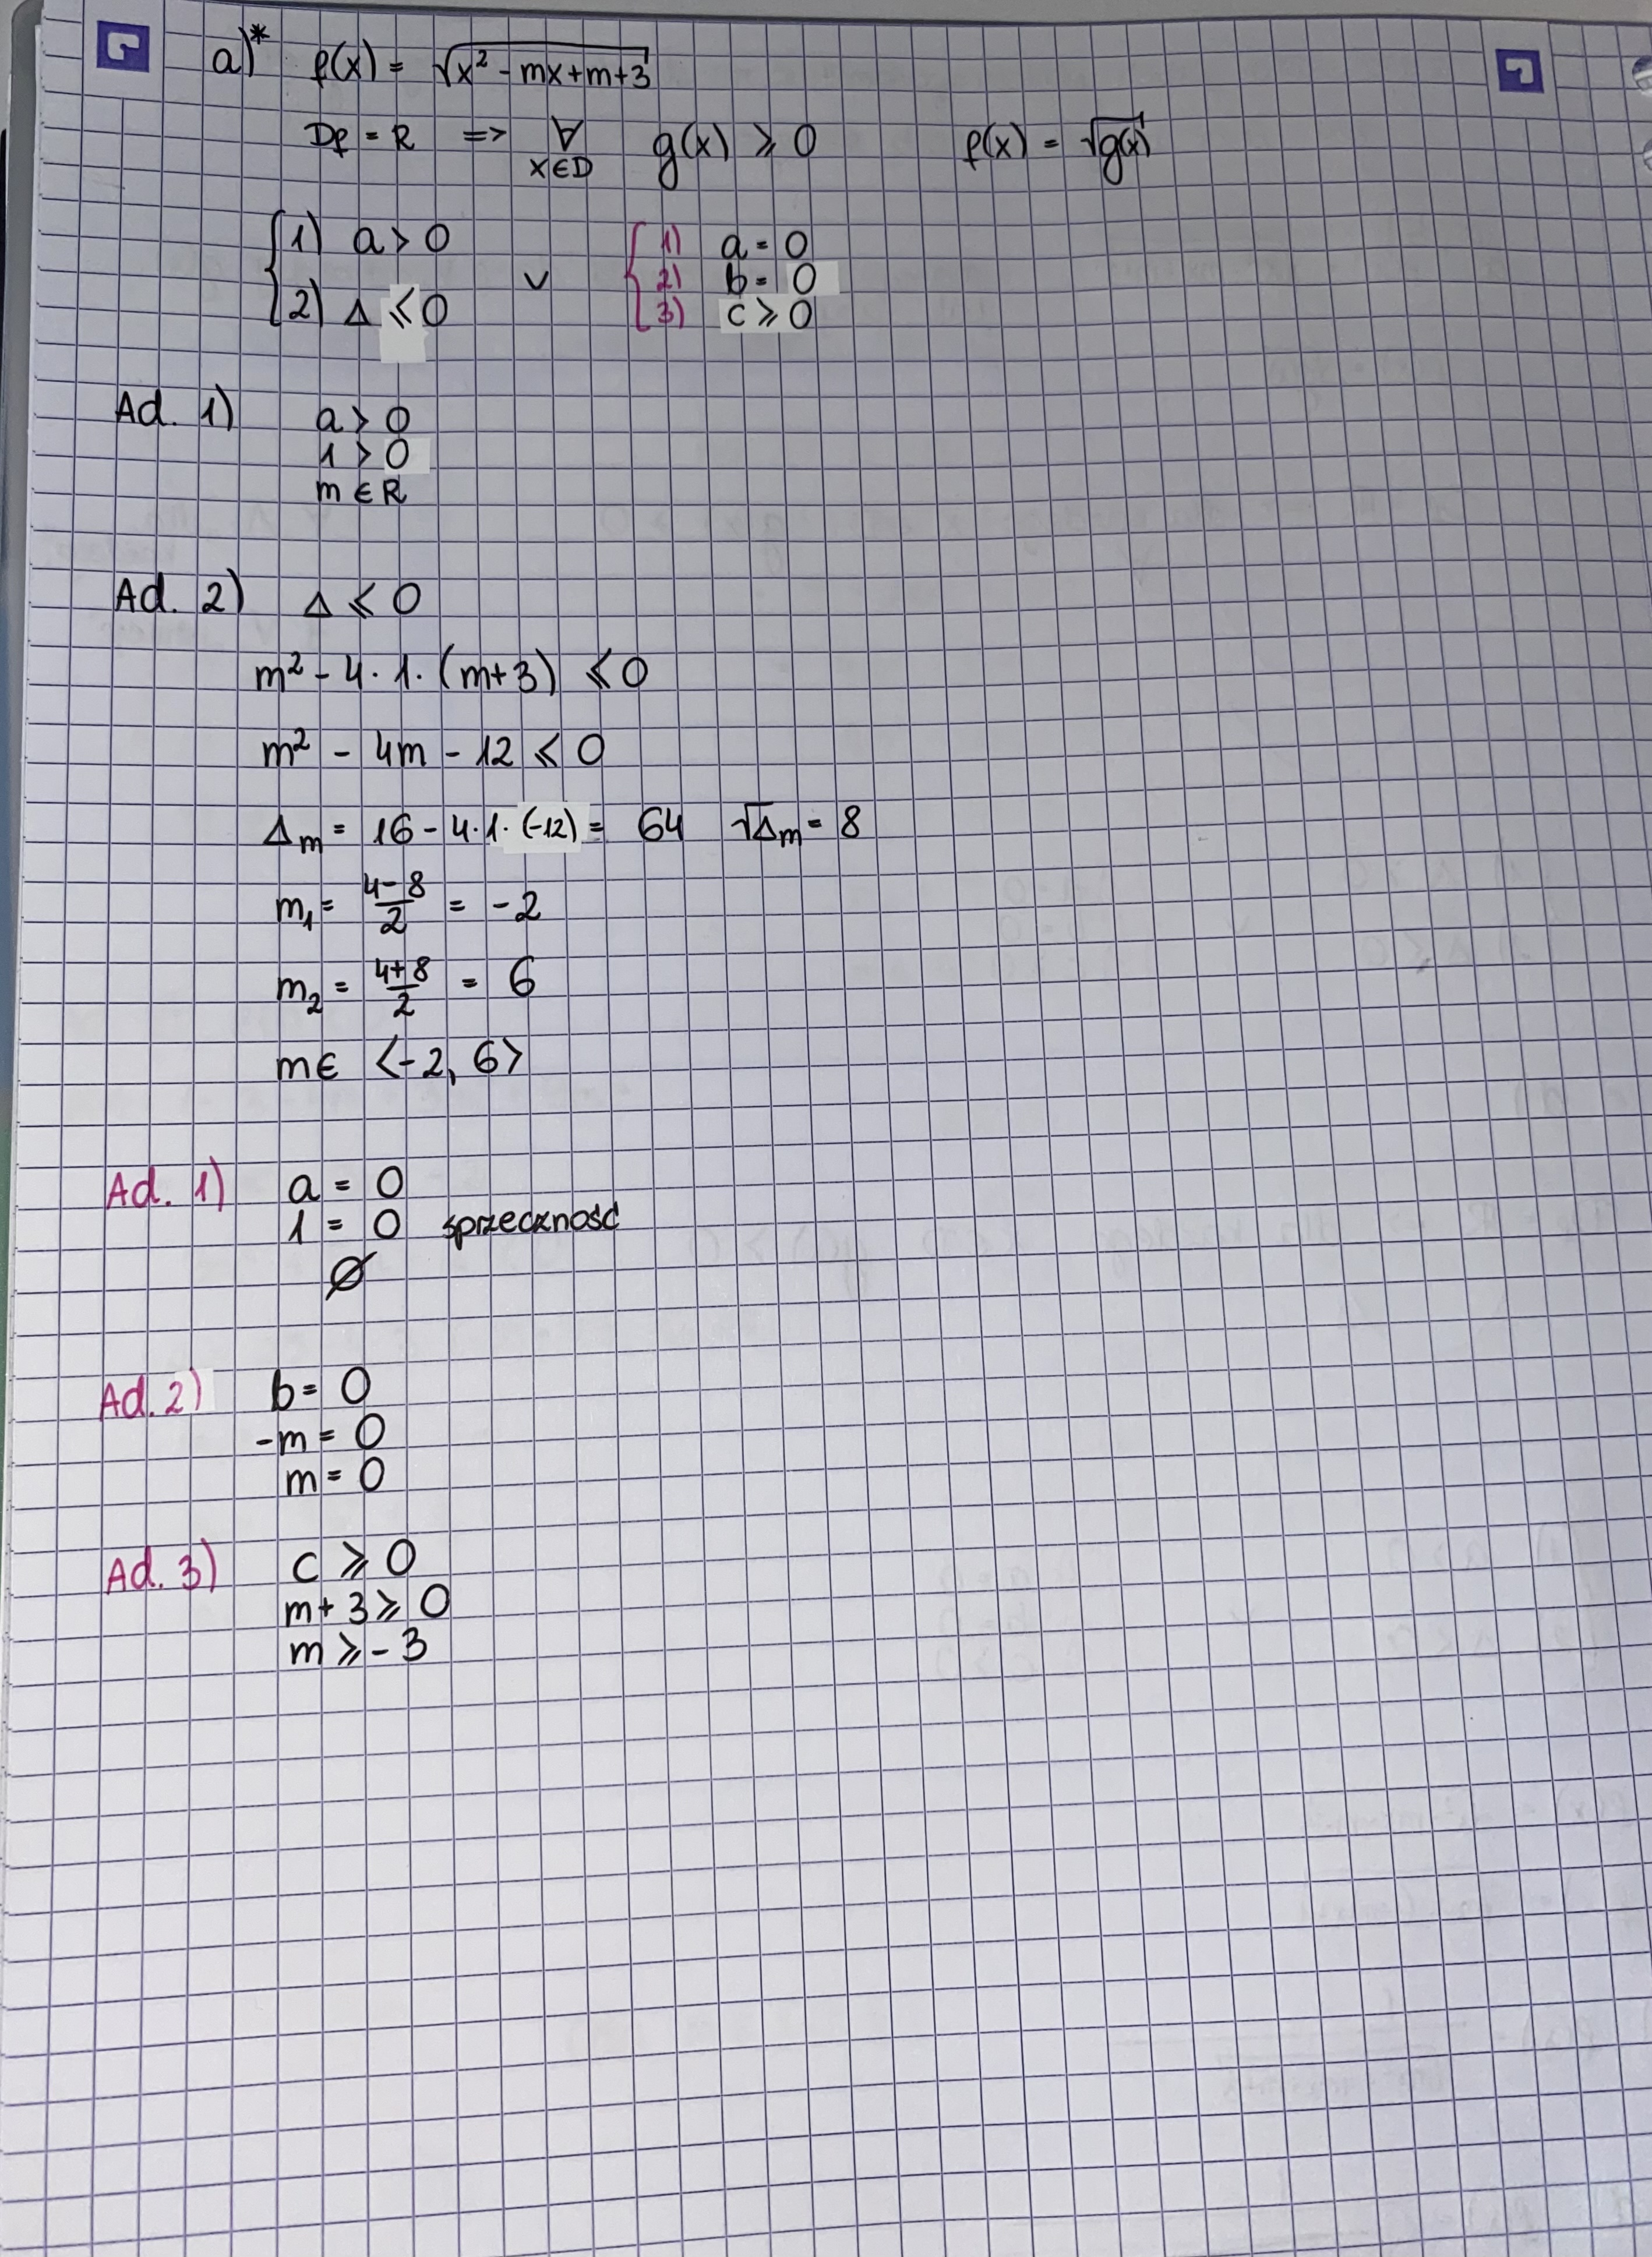 a)* f(x) = √(x² - mx + m + 3)
Df = R => ∀ x∈D g(x) ⩾ 0 f(x) = √g(x)
{ 1) a > 0 ∨ { 1) a = 0
2) b = 0
2) Δ ⩽ 0 3) c ⩾ 0
Ad. 1) a > 0
1 > 0
m ∈ R
Ad. 2) Δ ⩽ 0
m² - 4 · 1 · (m+3) ⩽ 0
m² - 4m - 12 ⩽ 0
Δm = 16 - 4 · 1 · (-12) = 64 √Δm = 8
m₁ = (4-8)/2 = -2
m₂ = (4+8)/2 = 6
m ∈ <-2, 6>
Ad. 1) a = 0
1 = 0 sprzeczność
∅
Ad. 2) b = 0
-m = 0
m = 0
Ad. 3) c ⩾ 0
m + 3 ⩾ 0
m ⩾ -3